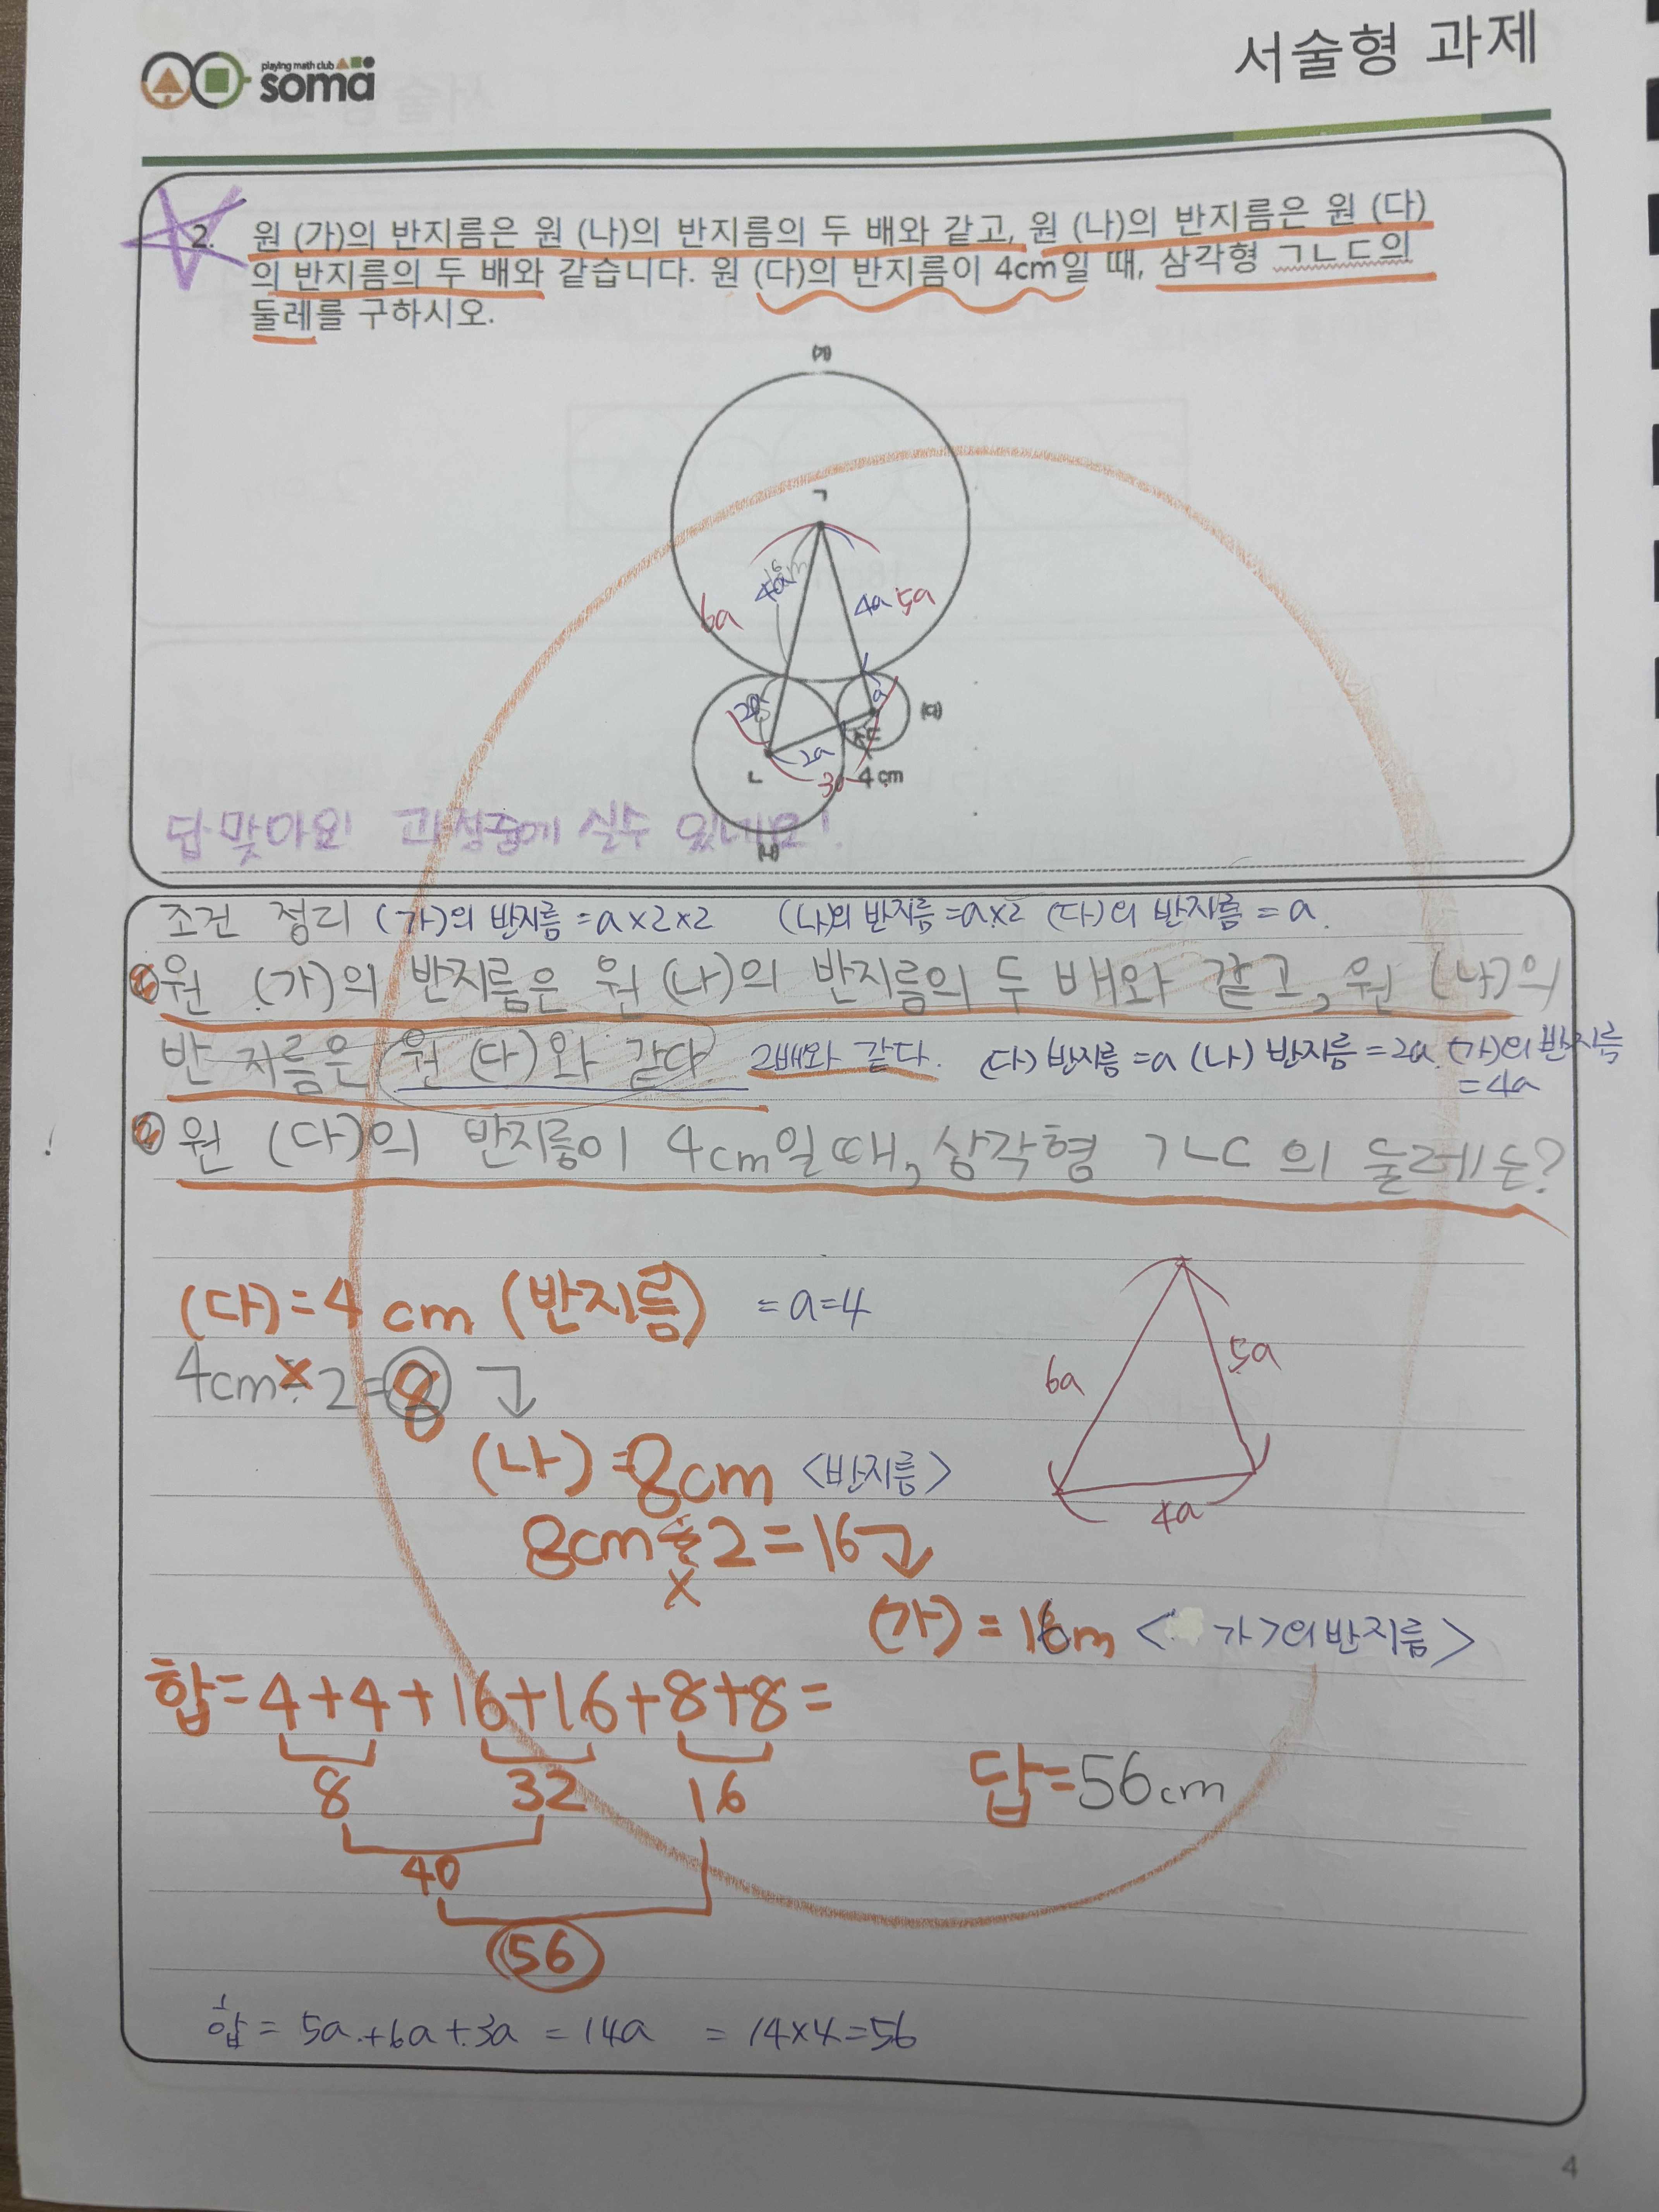 playing math club
soma
서술형 과제
2. 원 (가)의 반지름은 원 (나)의 반지름의 두 배와 같고, 원 (나)의 반지름은 원 (다)
의 반지름의 두 배와 같습니다. 원 (다)의 반지름이 4cm일 때, 삼각형 ㄱㄴㄷ의
둘레를 구하시오.
(가)
ㄱ
6a
4a 5a
a
(다)
ㄷ
2a
ㄴ
3a 4 cm
답 맞아요! 과정중에 실수 있네요!
(나)
조건 정리 (가)의 반지름 = a×2×2 (나)의 반지름 = a×2 (다)의 반지름 = a.
① 원 (가)의 반지름은 원 (나)의 반지름의 두 배와 같고, 원 (나)의
반지름은 원 (다)와 같다. 2배와 같다. (다) 반지름 = a (나) 반지름 = 2a. (가)의 반지름
= 4a
② 원 (다)의 반지름이 4cm일 때, 삼각형 ㄱㄴㄷ의 둘레는?
(다) = 4 cm (반지름) = a = 4
4cm × 2 = 8
6a
5a
(나) = 8cm <반지름>
4a
8cm ÷ 2 = 16
×
(가) = 16m < 가>의 반지름>
합 = 4+4+16+16+8+8 =
8 32 16
답 = 56cm
40
56
합 = 5a + 6a + 3a = 14a = 14×4 = 56
4